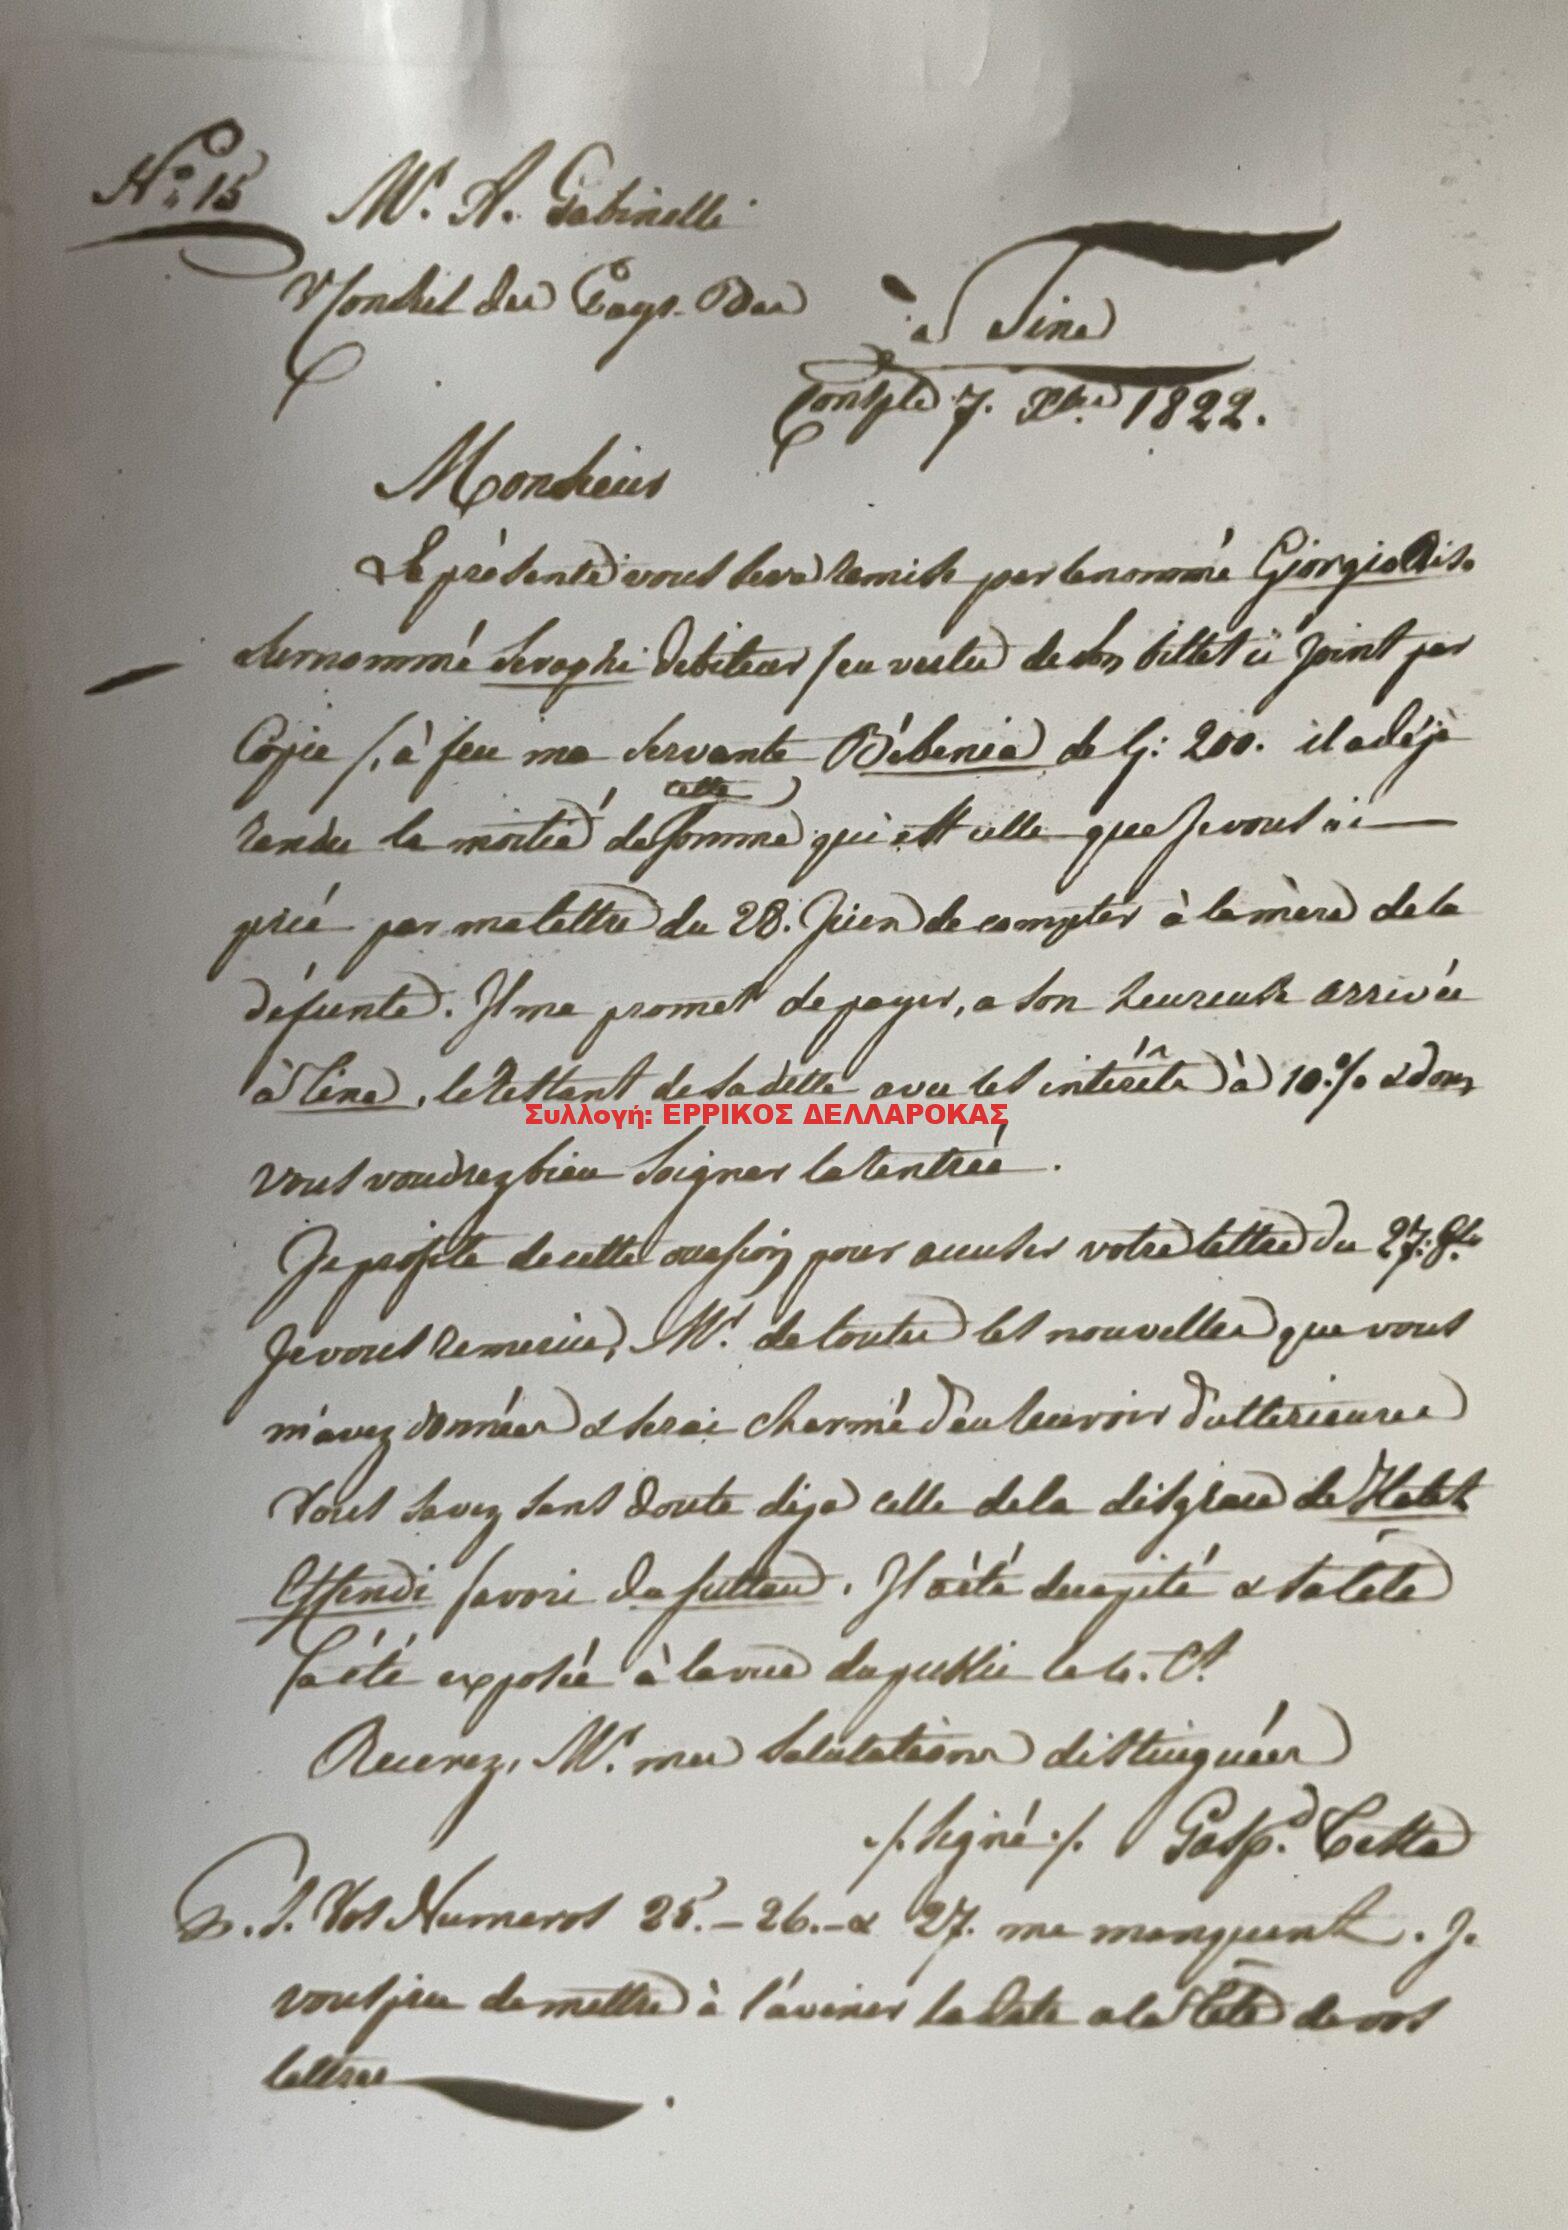 N.° 15
Mr. A. Gabinelli
V. Consul des Pays-Bas
à Tine
Consple 7. Xbre 1822.
Monsieur
La présente vous sera remise par le nommé Giorgio
surnommé Seraphi debiteur /en vertu de son billet ci joint par
Copie /, à feu ma servante Bébenia de G: 200. il a déja
cette
rendu la moitié de somme qui est celle que je vous ai
prié par ma lettre du 28. Juin de compter à la mère de la
défunte. Il me promet de payer, a son heureuse arrivée
à Tine, le restant de sa dette avec les intérêts à 10.% & dont
Συλλογή: ΕΡΡΙΚΟΣ ΔΕΛΛΑΡΟΚΑΣ
vous voudrez bien soigner la rentrée.
Je profite de cette occasion pour accuser votre lettre du 27. 9bre
Je vous remercie, Mr. de toutes les nouvelles que vous
m'avez données & serai charmé d'en recevoir d'ulterieures
Vous savez sans doute deja celle de la disgrace de Halet
Effendi favori du sultan. Il a été decapité & sa tête
a été exposée à la vue du public le 6. Ct
Recevez, Mr. mes salutations distinguées
./. signé ./. Gasp.d Testa
P. S. Vos Numeros 25. - 26. - & 27. me manquent. Je
vous prie de mettre à l'avenir la date a la tête de vos
lettres.